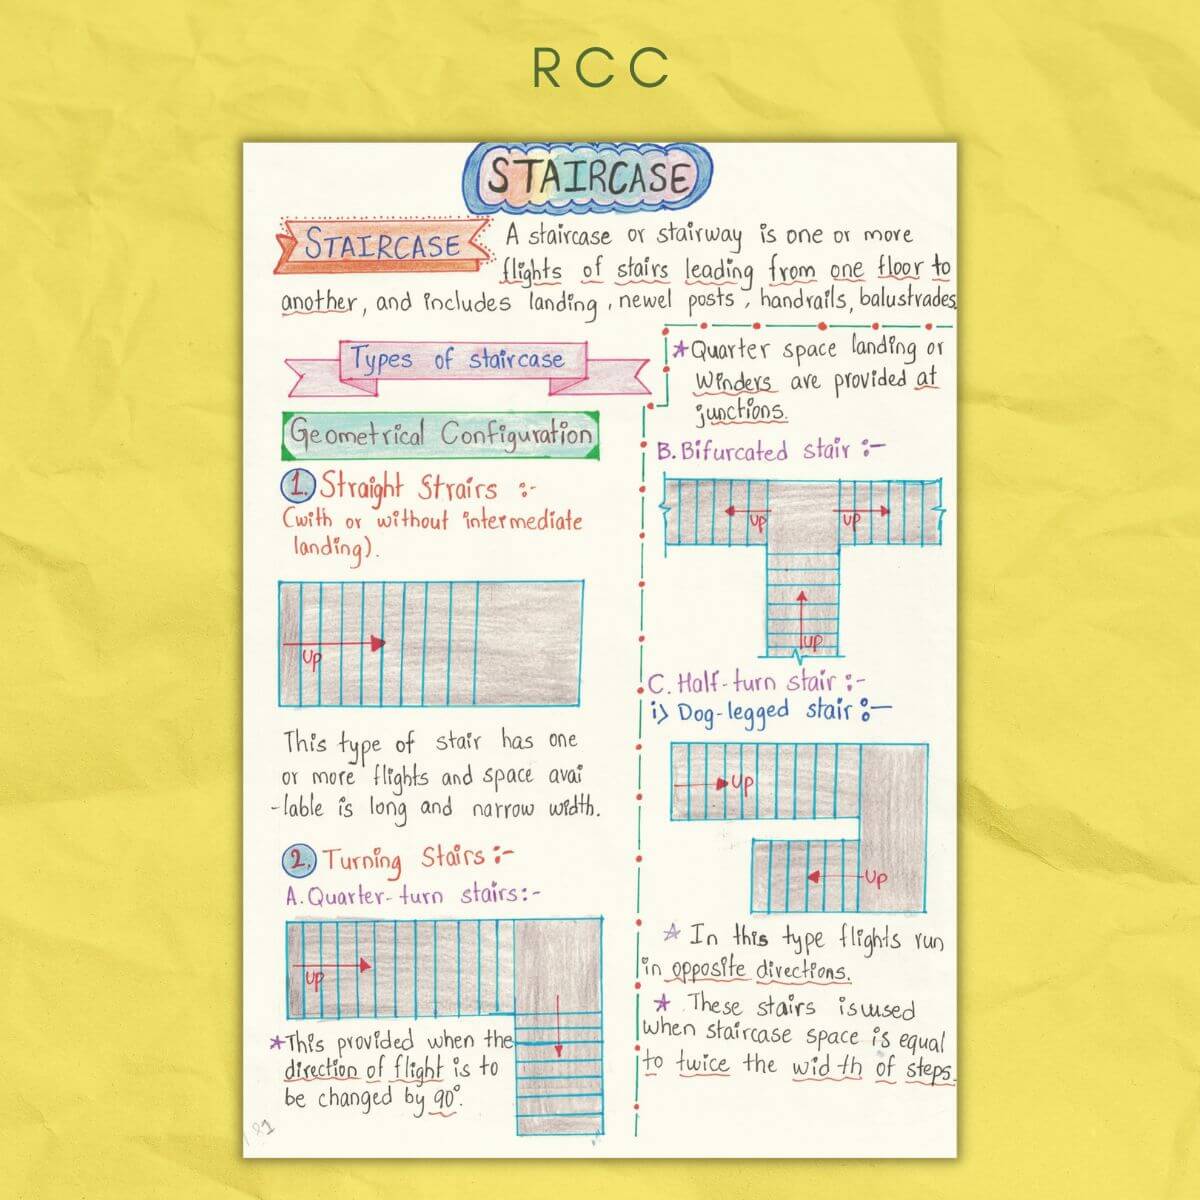 RCC
STAIRCASE
STAIRCASE
A staircase or stairway is one or more
flights of stairs leading from one floor to
another, and includes landing, newel posts, handrails, balustrades
Types of staircase
Geometrical Configuration
1. Straight Strairs :-
(with or without intermediate
landing).
Up
This type of stair has one
or more flights and space avai
-lable is long and narrow width.
2. Turning Stairs :-
A. Quarter-turn stairs:-
Up
*This provided when the
direction of flight is to
be changed by 90°.
*Quarter space landing or
Winders are provided at
junctions.
B. Bifurcated stair :-
Up
Up
Up
C. Half-turn stair :-
i) Dog-legged stair :-
Up
Up
* In this type flights run
in opposite directions.
* These stairs isused
when staircase space is equal
to twice the wid th of steps.